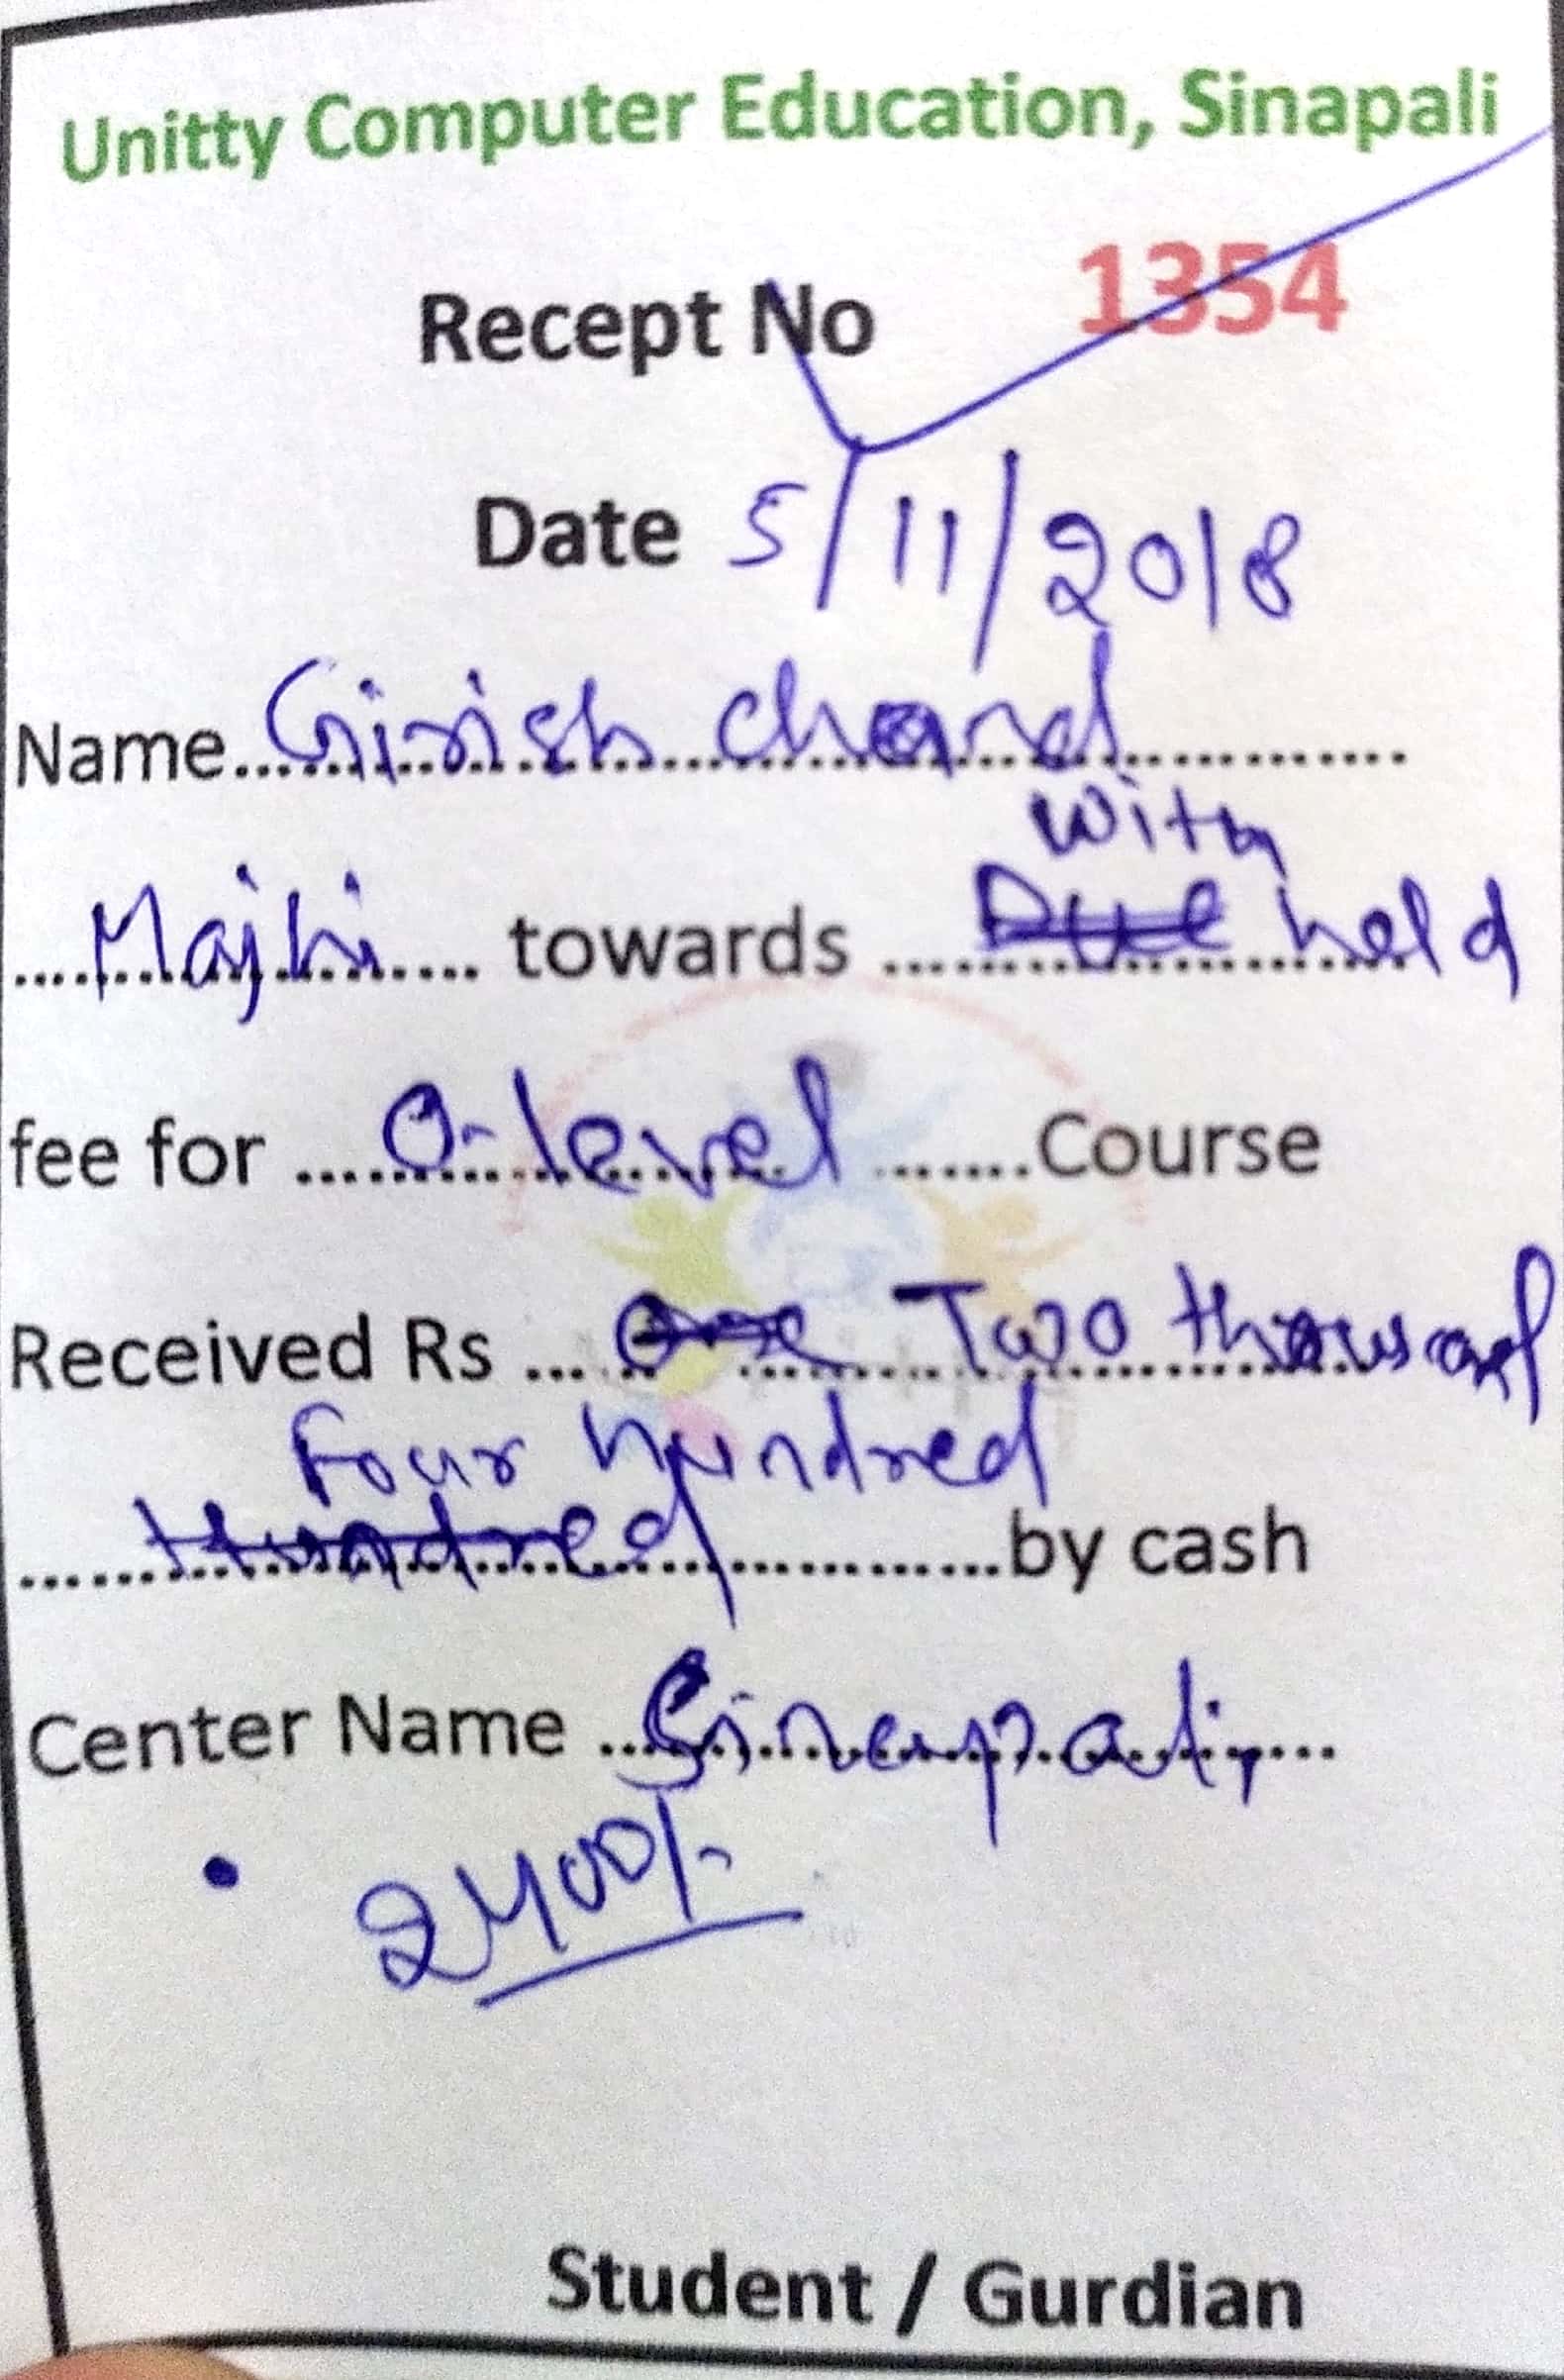 Unitty Computer Education, Sinapali
Recept No 1354
Date 5/11/2018
Name Girish Chand
with
Majhi towards Due held
fee for O-level Course
Received Rs One Two thousand
Four hundred
Hundred by cash
Center Name Sinapali,
2400/-
Student / Gurdian